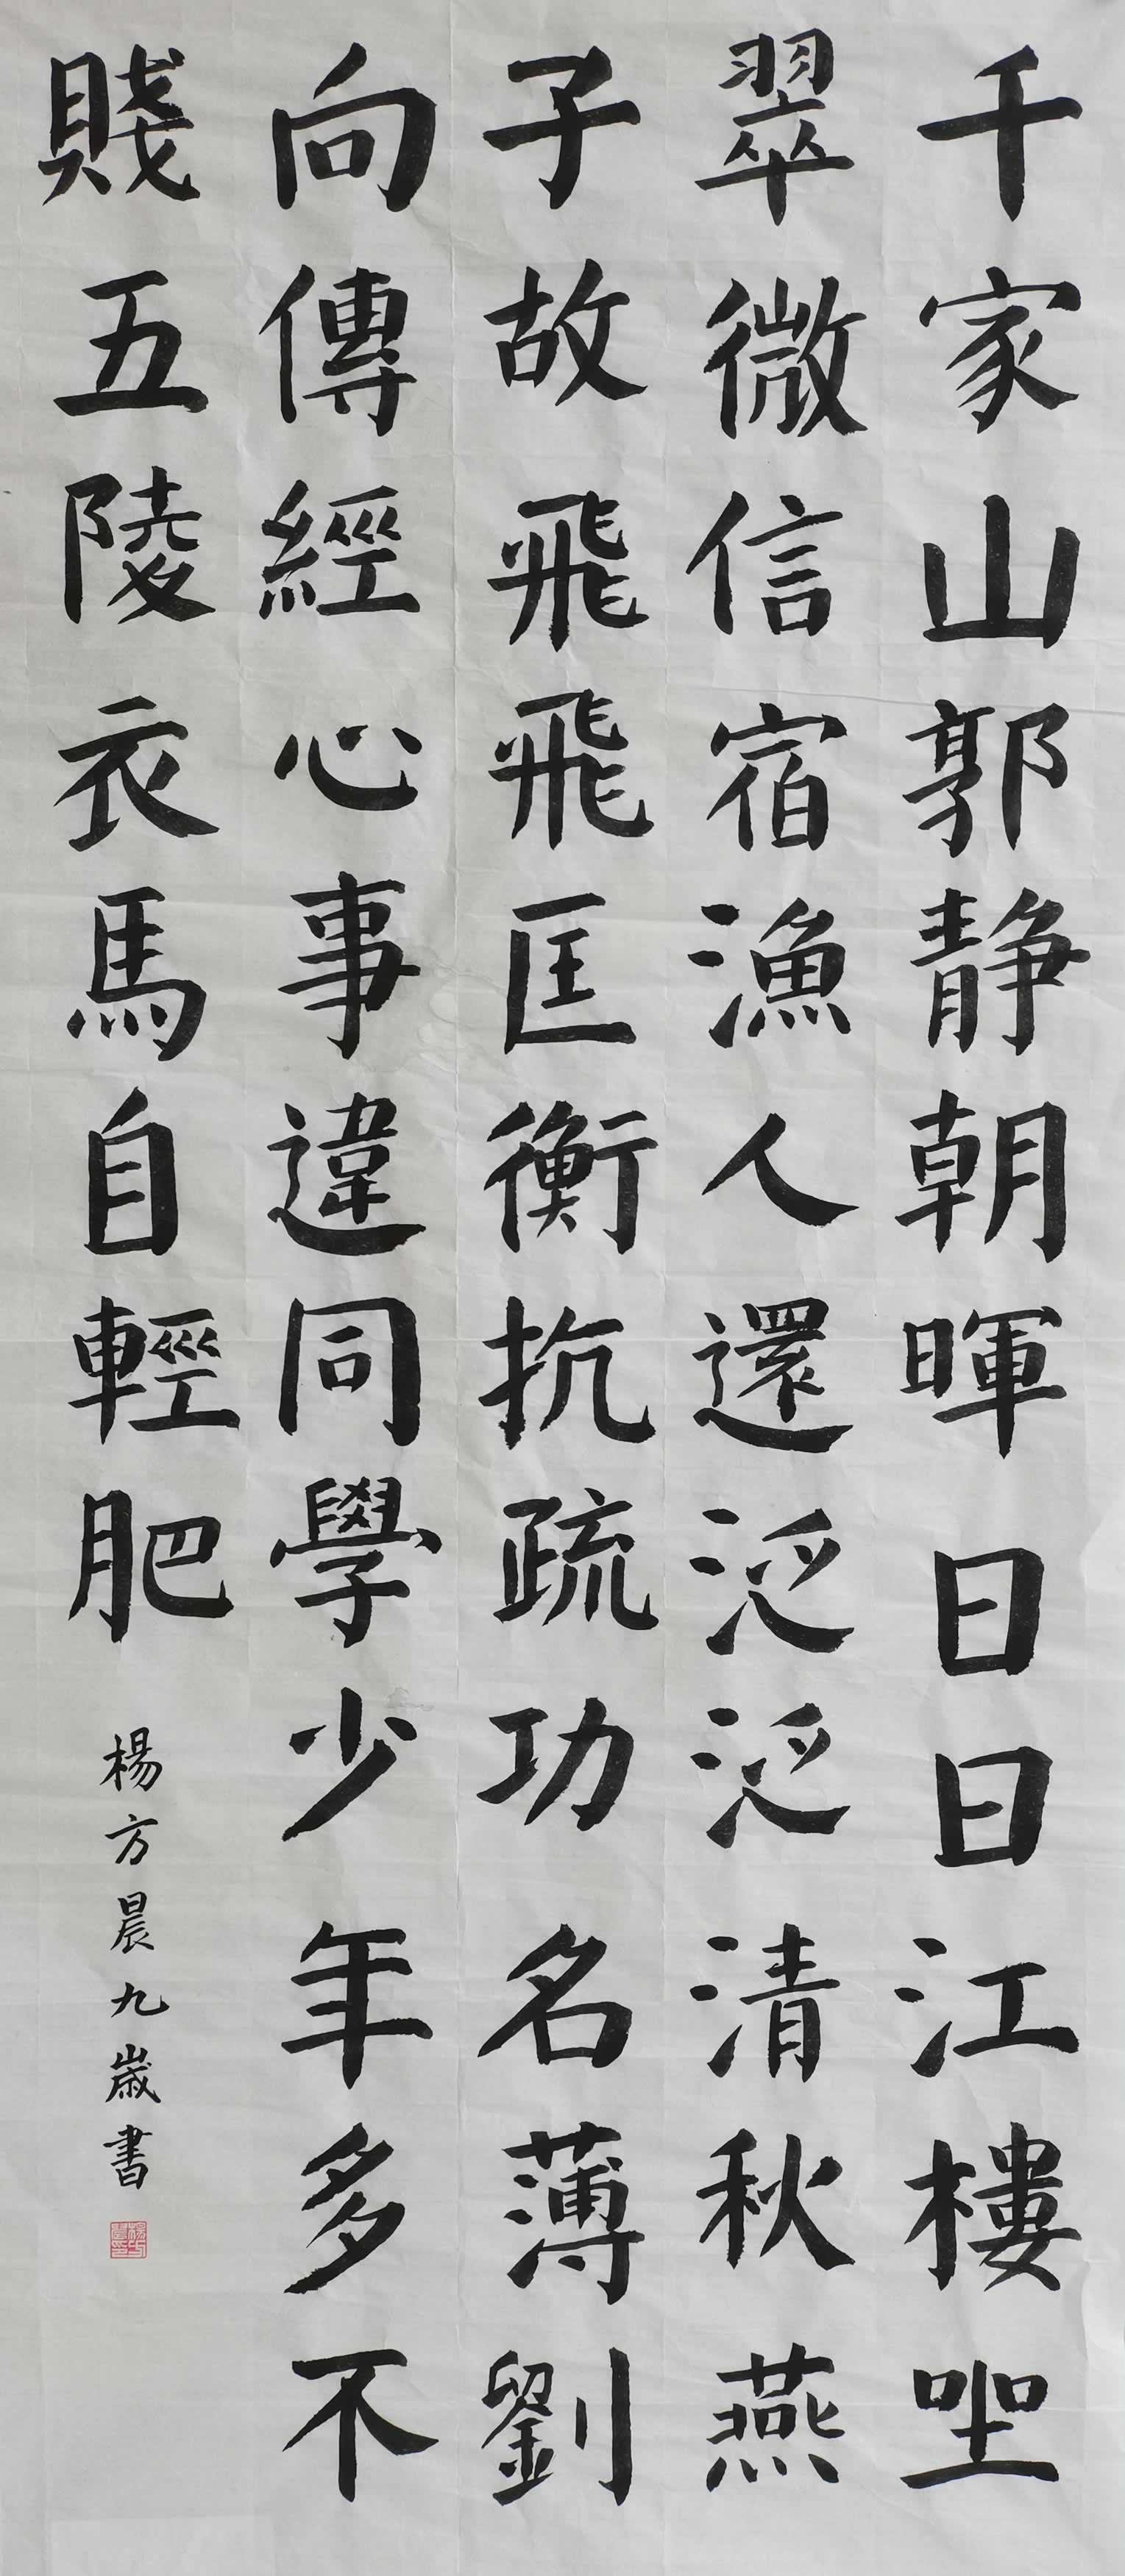 千家山郭静朝暉日日江樓坐
翠微信宿漁人還泛泛清秋燕
子故飛飛匡衡抗疏功名薄劉
向傳經心事違同學少年多不
賤五陵衣馬自輕肥
楊方晨九歲書